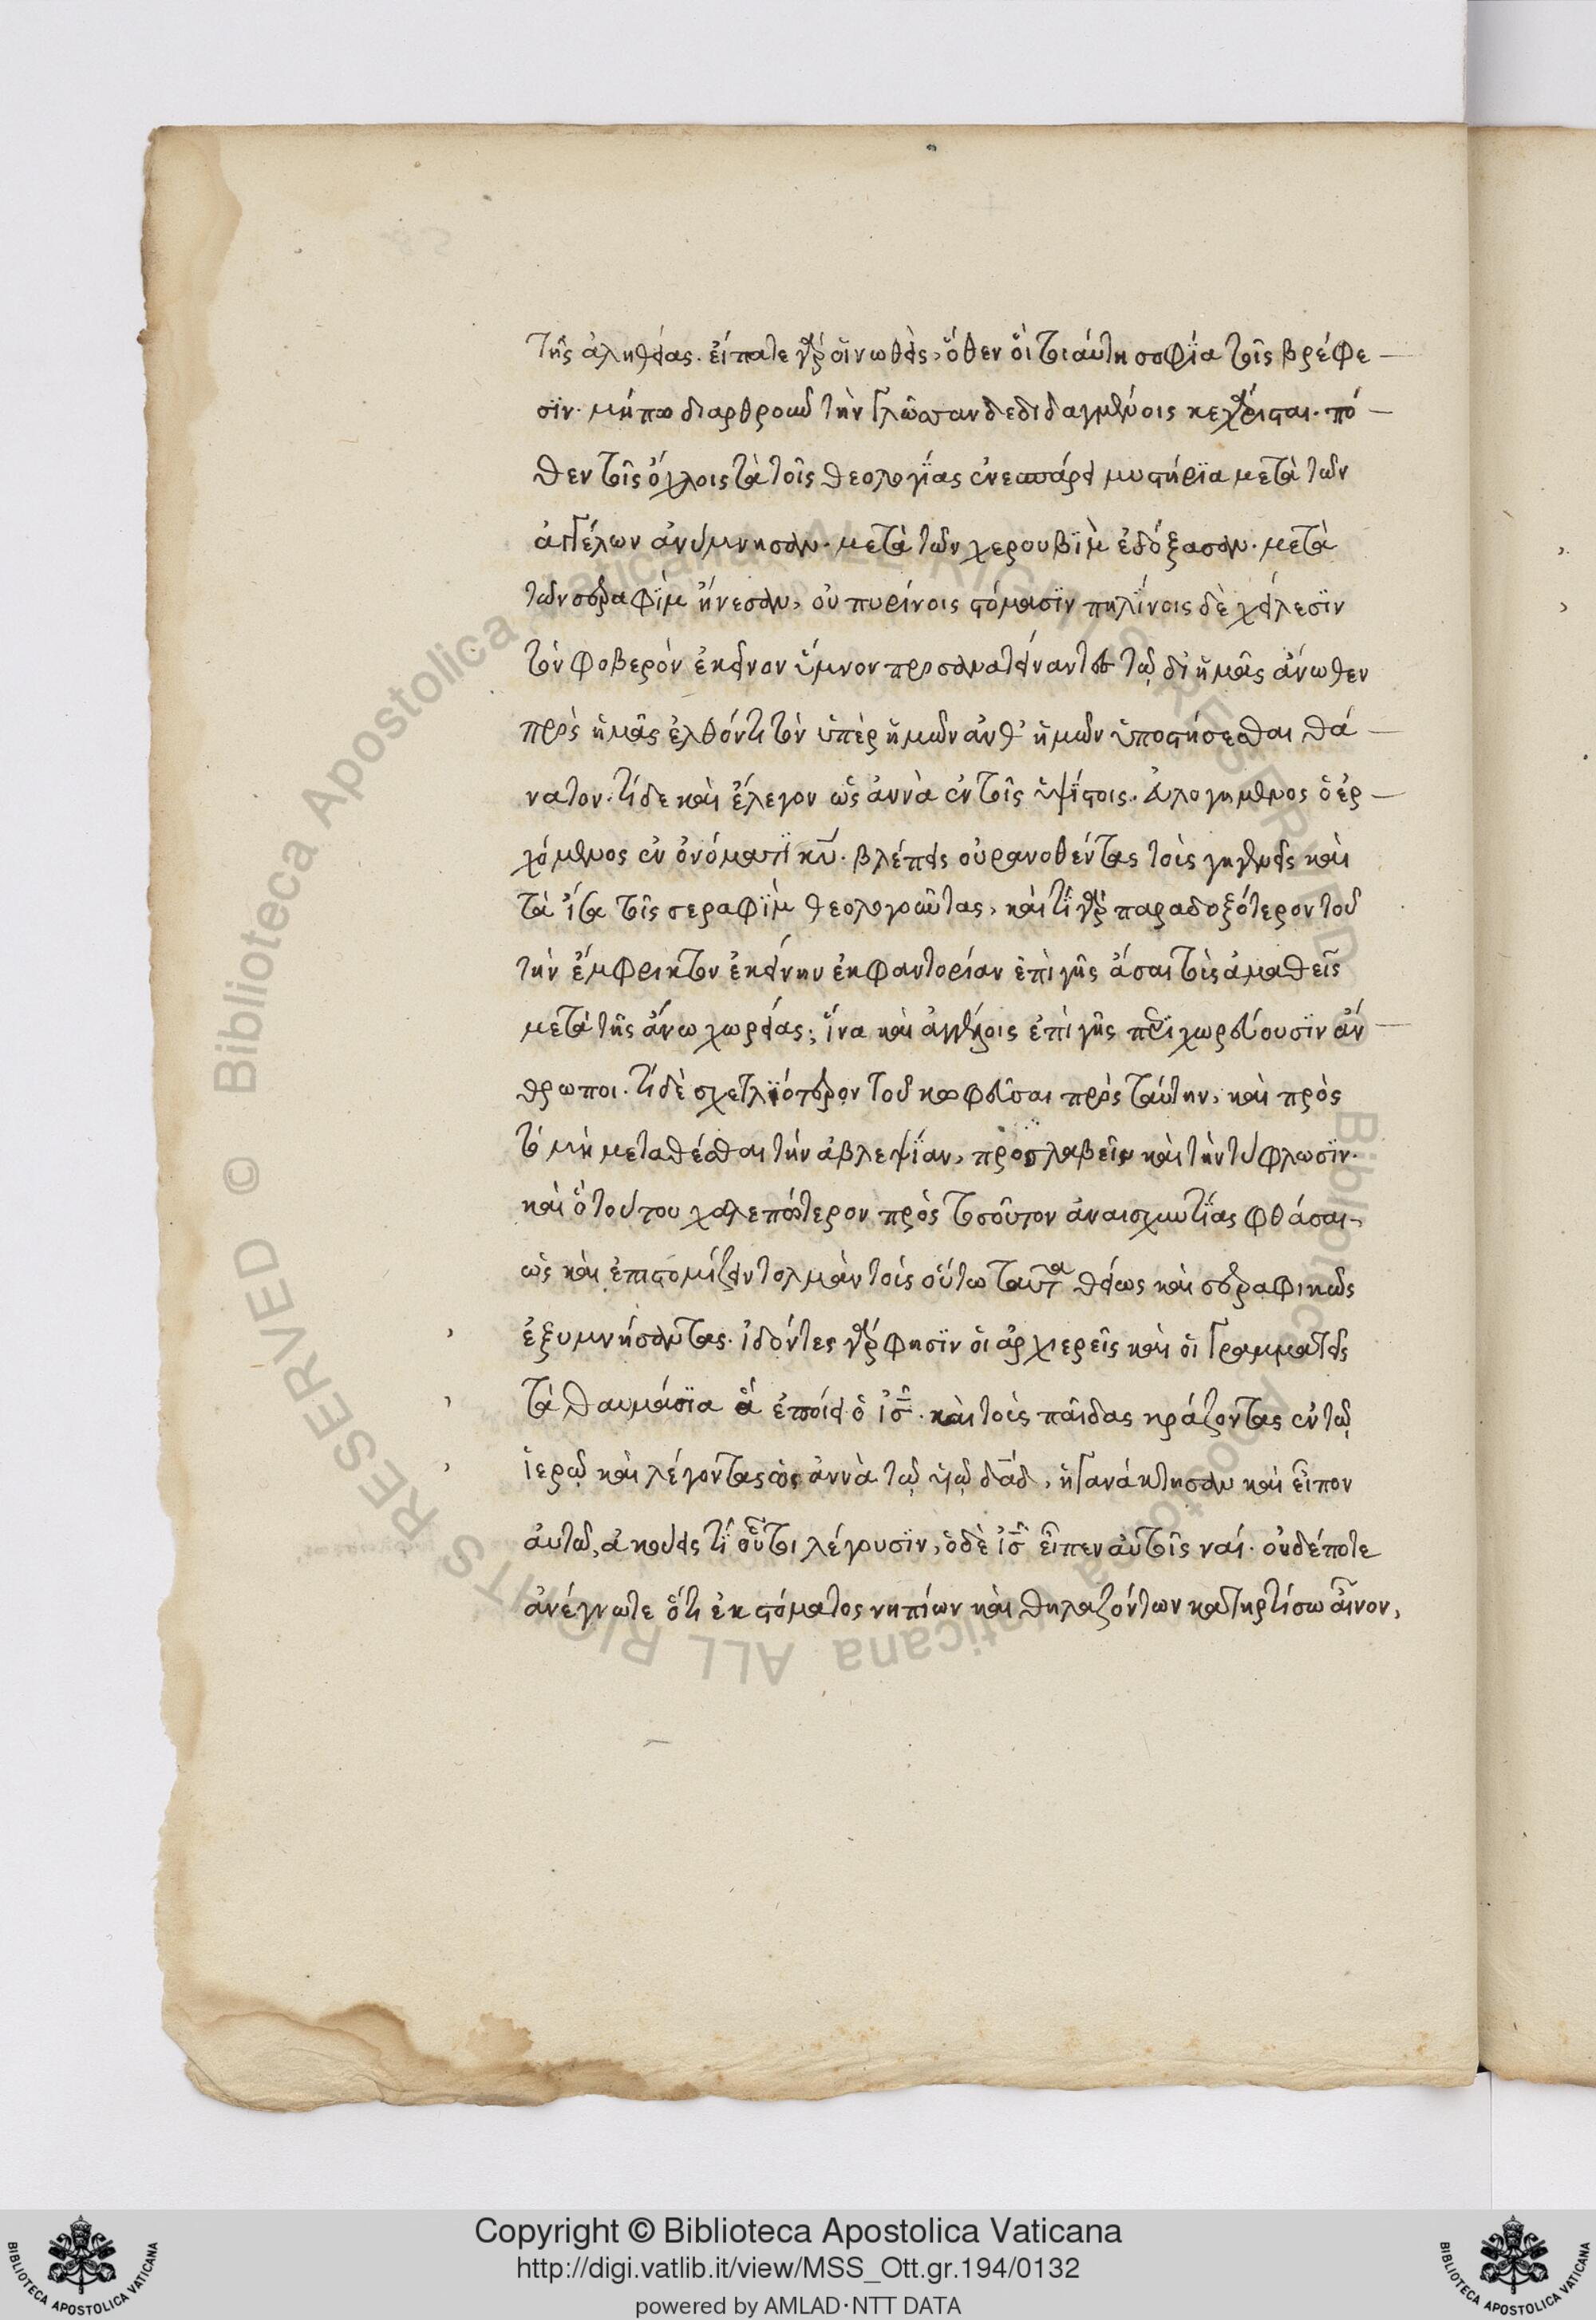 τῆς ἀληθείας. εἴπατε γὰρ οἱ νωθεῖς, ὅθεν ἡ τοιαύτη σοφΐα τοῖς βρέφε
σϊν. μήπω διαρθροῦν τὴν γλῶσσαν δεδιδαγμένοις κεχάρισται. πό
θεν τοῖς ὄχλοις τὰ τοῖς θεολογΐας ἐνεσπάρει μυστήρϊα μετὰ τῶν
ἀγγέλων ἀνύμνησαν. μετὰ τῶν χερουβΐμ ἐδόξασαν. μετὰ
τῶν σεραφΐμ ᾔνεσαν, οὐ πυρίνοις στόμασϊν πηλΐνοις δὲ χείλεσϊν
τὸν φοβερὸν ἐκεῖνον ὕμνον προσανατείναντες τῷ δι ἡμᾶς ἄνωθεν
πρὸς ἡμᾶς ἐλθόντι τὸν ὑπὲρ ἡμῶν ἀνθ' ἡμῶν ὑποστήσεσθαι θά
νατον. τί δε καὶ ἔλεγον ὡς ἀννὰ ἐν τοῖς ὑψΐστοις. εὐλογημένος ὁ ἐρ
χόμενος ἐν ὀνόματϊ κυ. βλέπεις οὐρανοθέντας τοὺς γηγενεῖς καὶ
τὰ ἴσα τοῖς σεραφΐμ θεολογοῦντας, καὶ τΐ γὰρ παραδοξότερον τοῦ
τὴν ἔμφρικτον ἐκείνην ἐκφαντορίαν ἐπὶ γῆς ᾆσαι τοὺς ἀμαθεῖς
μετὰ τῆς ἄνω χορείας; ἵνα καὶ ἀγγέλοις ἐπὶ γῆς περϊχωρεύουσϊν ἄν
θρωποι. τί δὲ σχετλϊότερον τοῦ κωφεῦσαι πρὸς ταύτην, καὶ πρὸς
τὸ μὴ μεταθέσθαι τὴν ἀβλεψΐαν, προσλαβεῖν καὶ τὴν τύφλωσϊν.
καὶ ὃ τούτου χαλεπώτερον πρὸς τοσοῦτον ἀναισχυντΐας φθάσαι,
ὡς καὶ ἐπιστομίζειν τολμᾶν τοὺς οὕτω ταῦτα θείως καὶ σεραφικῶς
ἐξυμνήσαντας. ἰδόντες γάρ φησϊν οἱ ἀρχιερεῖς καὶ οἱ γραμματεῖς
τὰ θαυμάσϊα ἃ ἐποίει ὁ ἰσ. καὶ τοὺς παῖδας κράζοντας ἐν τῷ
ἱερῷ καὶ λέγοντας ὡς ἀννὰ τῷ υἱῷ δαδ, ἠγανάκτησαν καὶ εἶπον
αὐτῶ, ἀκούεις τΐ οὗτοι λέγουσϊν, ὁ δὲ ἰσ εἶπεν αὐτοῖς ναί. οὐδέποτε
ἀνέγνωτε ὅτι ἐκ στόματος νηπίων καὶ θηλαζόντων κατηρτίσω αἶνον,
Copyright © Biblioteca Apostolica Vaticana
http://digi.vatlib.it/view/MSS_Ott.gr.194/0132
powered by AMLAD·NTT DATA